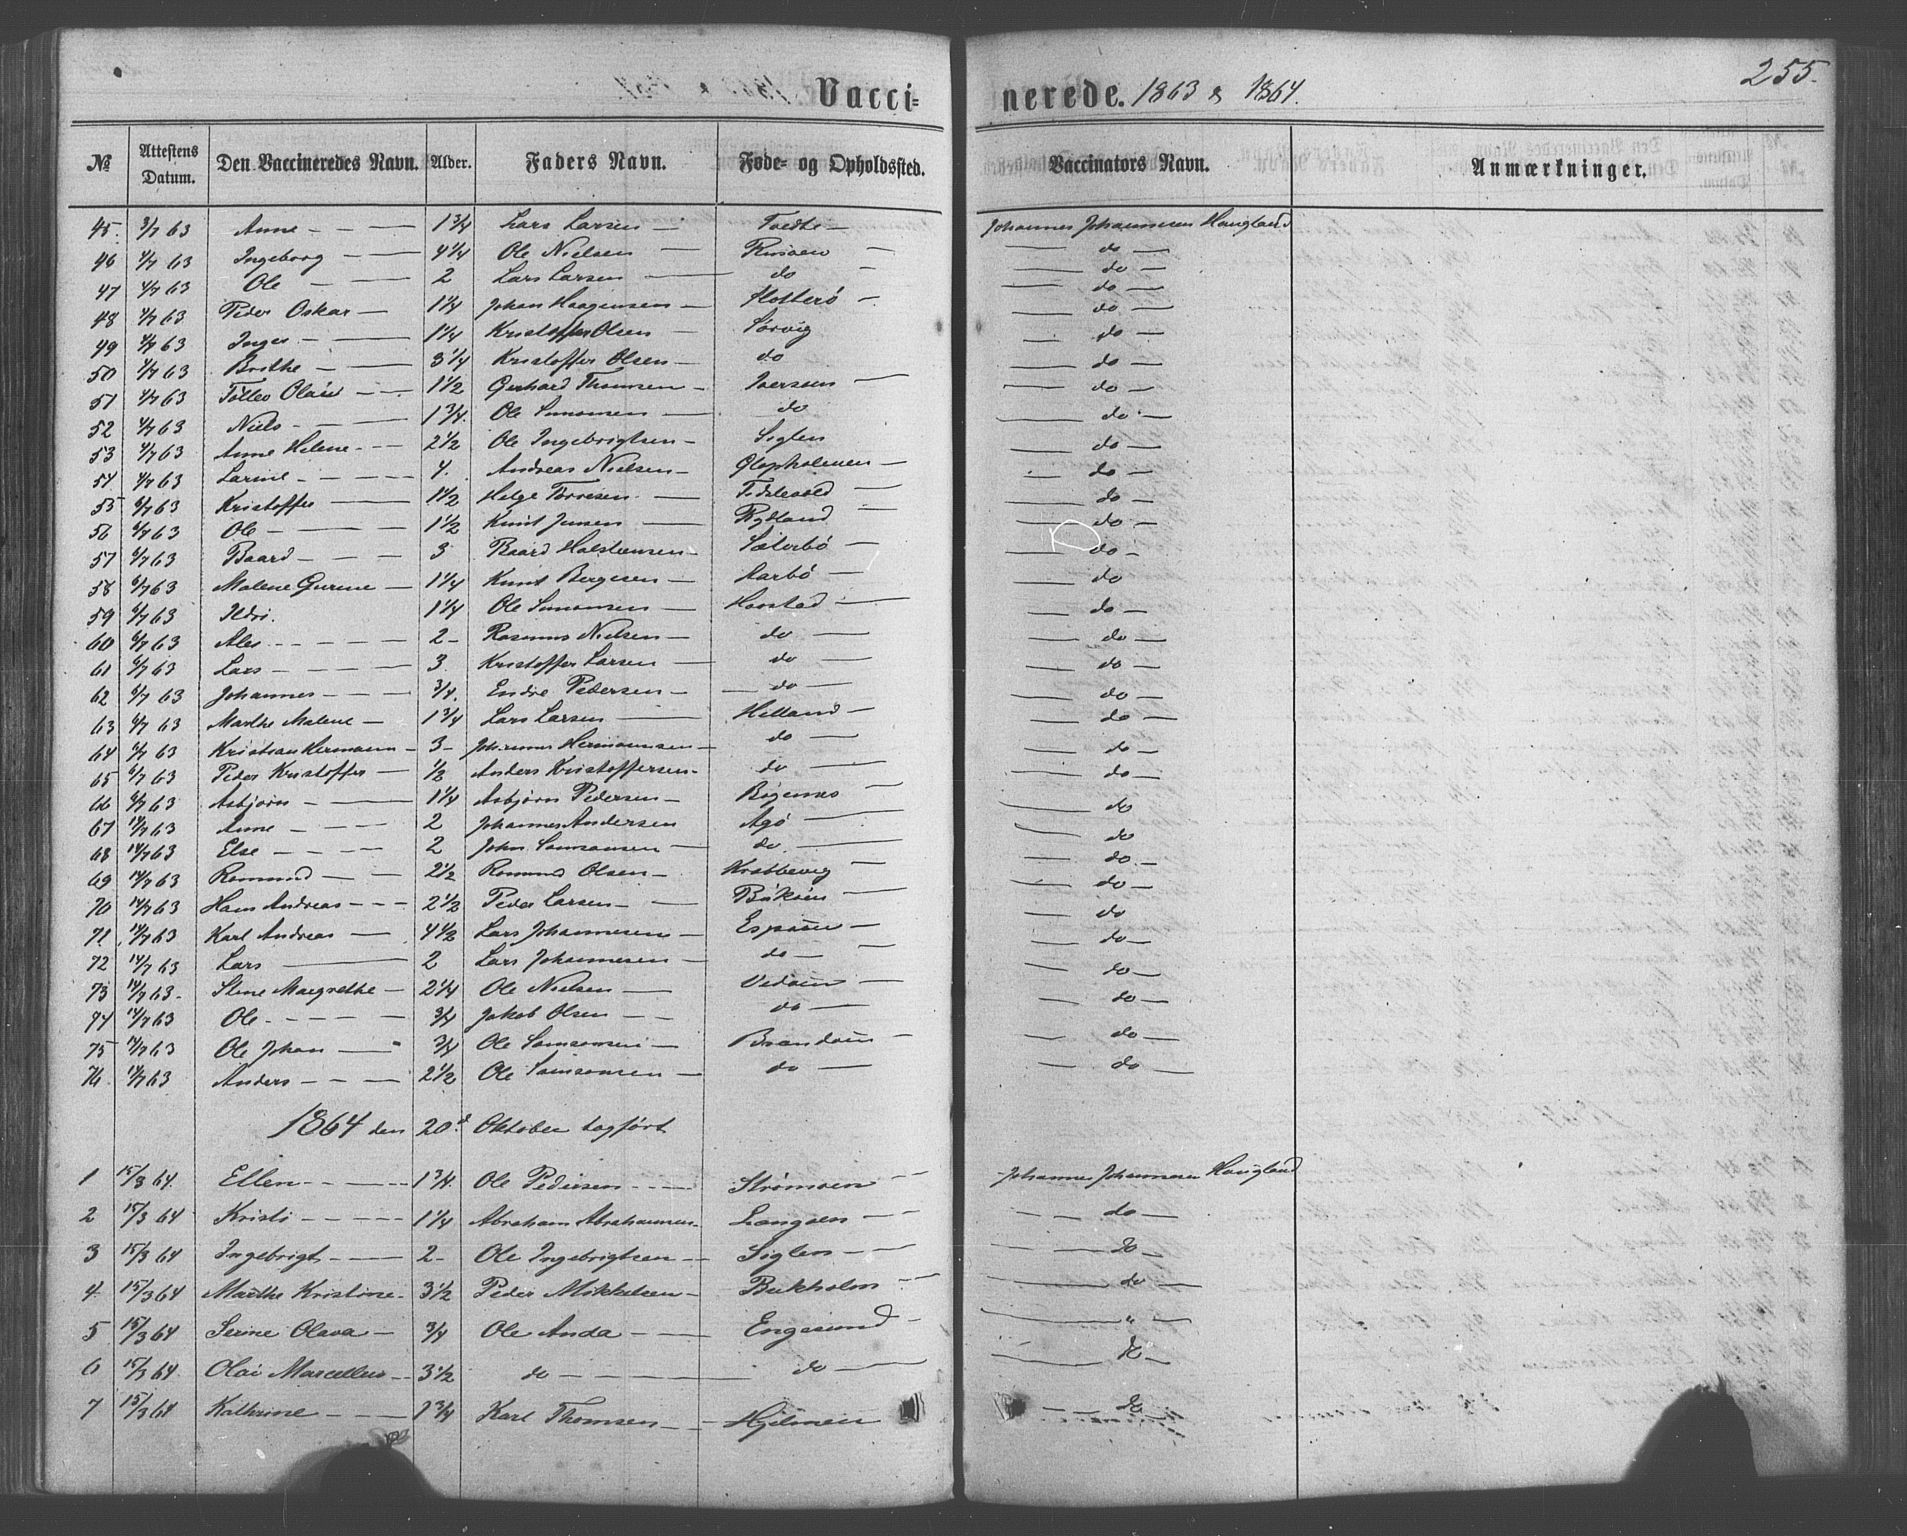 Vacci-nerede. 1863 & 1864. 255.
№ Attestens Datum. Den Vaccineredes Navn. Alder. Faders Navn. Føde- og Opholdssted. Vaccinators Navn. Anmærkninger.
45. 3/7 63 Anne 1 3/4 Lars Larsen Johannes Johannesen Haugland
46 4/7 63 Ingeborg 4 1/4 Ole Nielsen do
47 4/7 63 Ole 2 Lars Larsen do do
48 4/7 63 Peder Oskar 1 1/4 Johan Haagensen do
49 4/7 63 Inger 1 1/4 Kristoffer Olsen Sørvig do
50 4/7 63 Brithe 3 1/4 Kristoffer Olsen do do
51 4/7 63 1 1/2 Gerhard Thomsen Iversen do
52 4/7 63 Niels 1 3/4 Ole Simonsen do do
53 4/7 63 Anne Helene 2 1/2 Ole Ingebrigtsen Siglen do
54 4/7 63 Larine 4. Andreas Nielsen do
55 6/7 63 Kristoffer 1 1/2 Helge Torresen do
56 6/7 63 Ole 1 1/2 Knut Jensen Rydland do
57 6/7 63 Baard 3 Baard Halsteensen Sæterbø do
58 6/7 63 Malene Gurine 1 1/4 Knut Bergesen Aarbø do
59 6/7 63 Ildri. 1 1/4 Ole Simonsen Haastad do
60 6/7 63 Ales 2 Rasmus Nielsen do do
61 6/7 63 Lars 3. Kristoffer Larsen do do
62 6/7 63 Johannes 3/4. Endre Pedersen do do
63 6/7 63 Marthe Malene 1 3/4 Lars Larsen Helland do
64 6/7 63 Kristian Hermann 3 Johannes Hermansen do do
65 6/7 63 Peder Kristoffer 1/2 Anders Kristoffersen do do
66 6/7 63 Asbjørn 1 1/4 Asbjørn Pedersen Bognøes do
67 14/7 63 Anne 2 Johannes Andersen Agø do
68 14/7 63 Else 2 John Samsonsen do do
69 14/7 63 Romund 2 1/2 Romund Olsen Krabbevig do
70 14/7 63 Hans Andreas 2 1/2 Peder Larsen do
71 14/7 63 Karl Andreas 4 1/2 Lars Johannesen Espøen do
72 14/7 63 Lars 2 Lars Johannesen do do
73 14/7 63. Stine Margrethe 2 1/4 Ole Nielsen Vedøen do
74 14/7 63 Ole 3/4 Jakob Olsen do do
75 14/7 63 Ole Johan 3/4 Ole Samsonsen Brandøen do
76 14/7 63 Anders 2 1/2 Ole Samsonsen do do
1864 den 20d Oktober tagført
1 15/3 64. Ellen 1 3/4. Ole Pedersen Strømøen Johannes Johannesen Haugland
2 15/3 64 Kristi 1 1/4 Abraham Abrahamsen Langøen do
3 15/3 64 Ingebrigt 2 Ole Ingebrigtsen Siglen do
4 15/3 64 Marthe Kristine 3 1/2 Peder Mikkelsen Bukholm do
5 15/3 64 Serine Olava 3/4 Ole Anda Engesund "
6 15/3 64 Olai Marcellus 3 1/2 do do do
7 15/3 64 Kathrine 1 3/4 Karl Thomsen Hjelmen do